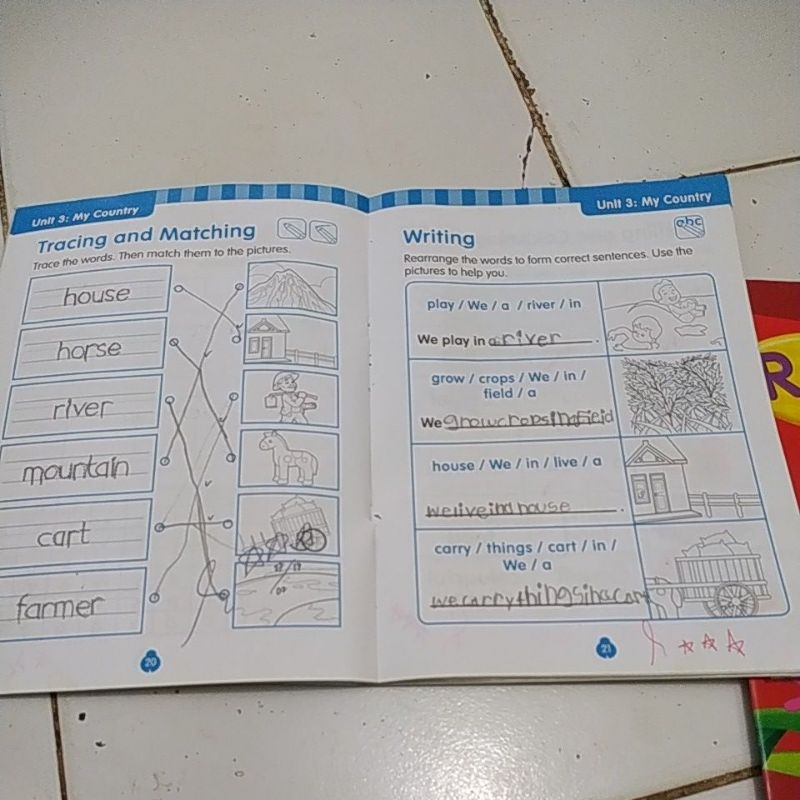 Unit 3: My Country
Tracing and Matching
Trace the words. Then match them to the pictures.
house
horse
river
mountain
cart
farmer
20
Unit 3: My Country
abc
Writing
Rearrange the words to form correct sentences. Use the
pictures to help you.
play / We / a / river / in
We play in a river.
grow / crops / We / in /
field / a
We growcropsinafield
house / We / in / live / a
weliveinahouse.
carry / things / cart / in /
We / a
wecarrythingsinacart
21
R